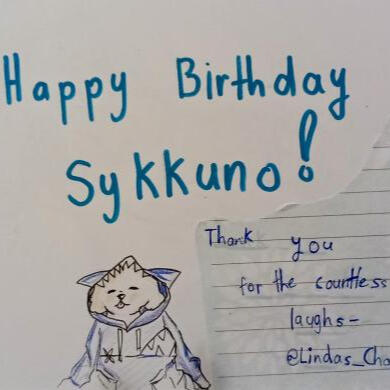 Happy Birthday
Sykkuno!
Thank you
for the countless
laughs-
@Lindas_Cha